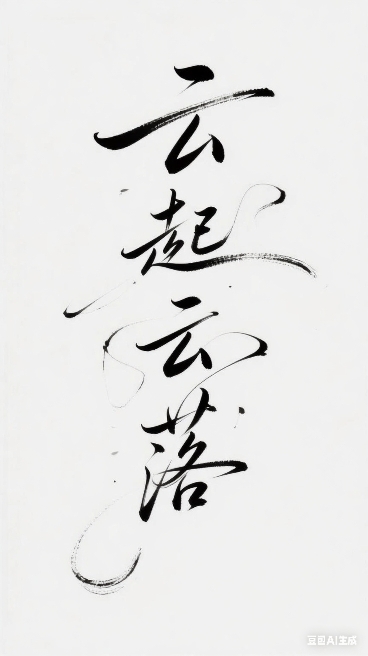 云起云落
豆包AI生成